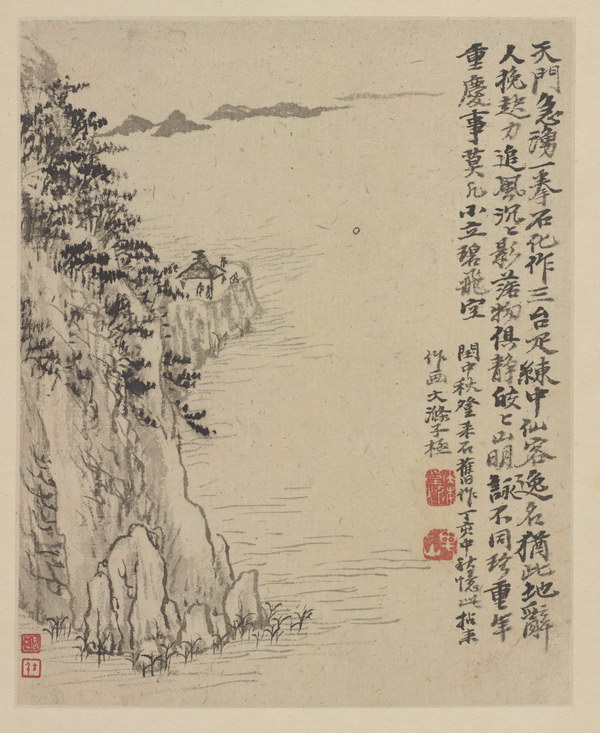 天門急湧一拳石化作三台疋練中仙客逸名猶此地辭
人挽起力追風沉〻影落物俱靜皎〻山明詠不同珍重年
重慶事莫小立碧飛空
閏中秋登采石舊作丁中秋憶此拈來
作画大滌子極